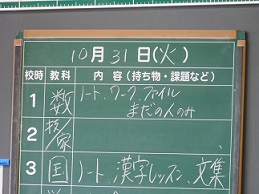 10月31日(火)
校時 教科 内容(持ち物・課題など)
1 数 ノート、ワーク ファイル
まだの人のみ
2 家
3 国 ノート、漢字レッスン、文集